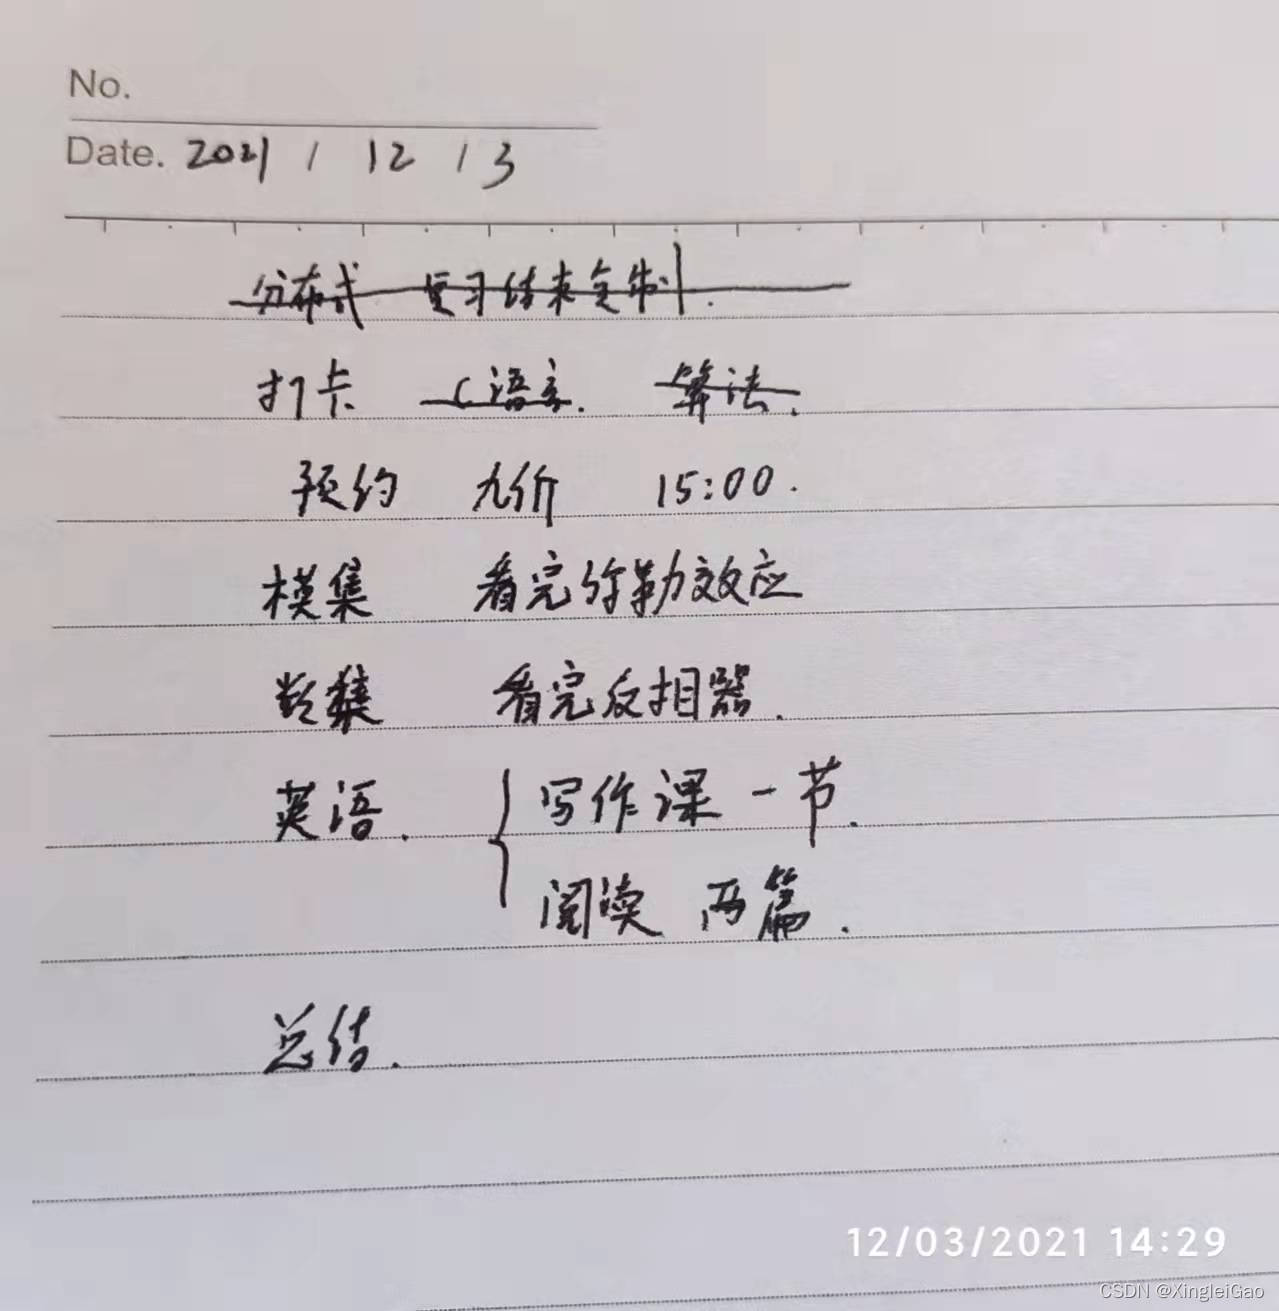 No.
Date. 2021 / 12 / 3
分布式 复习结束复制.
打卡 C语言. 算法.
预约 九价 15:00.
模集 看完弥勒效应
数集 看完反相器.
英语. { 写作课 一节.
阅读 两篇.
总结.
12/03/2021 14:29
CSDN @XingleiGao